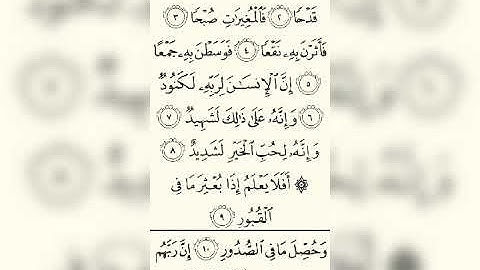 قَدْحٗا ٢ فَٱلْمُغِيرَٰتِ صُبْحٗا ٣
فَأَثَرْنَ بِهِۦ نَقْعٗا ٤ فَوَسَطْنَ بِهِۦ جَمْعًا
٥ إِنَّ ٱلْإِنسَٰنَ لِرَبِّهِۦ لَكَنُودٞ
٦ وَإِنَّهُۥ عَلَىٰ ذَٰلِكَ لَشَهِيدٞ ٧
وَإِنَّهُۥ لِحُبِّ ٱلْخَيْرِ لَشَدِيدٌ ٨
۞ أَفَلَا يَعْلَمُ إِذَا بُعْثِرَ مَا فِي
ٱلْقُبُورِ ٩
وَحُصِّلَ مَا فِي ٱلصُّدُورِ ١٠ إِنَّ رَبَّهُم